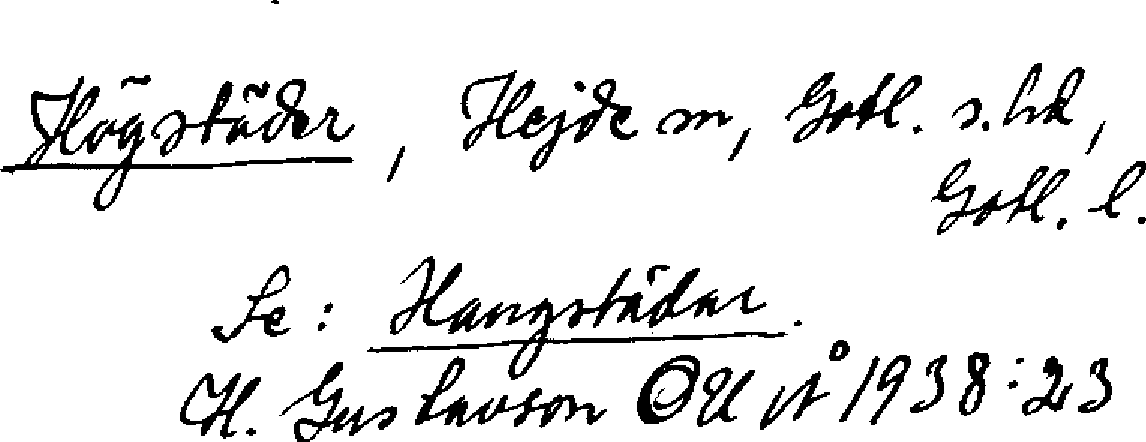 Högstäder, Hejde sn, Gotl. s. hd,
Gotl. l.
Se: Haugstädar.
H. Gustavson OUÅ 1938:23